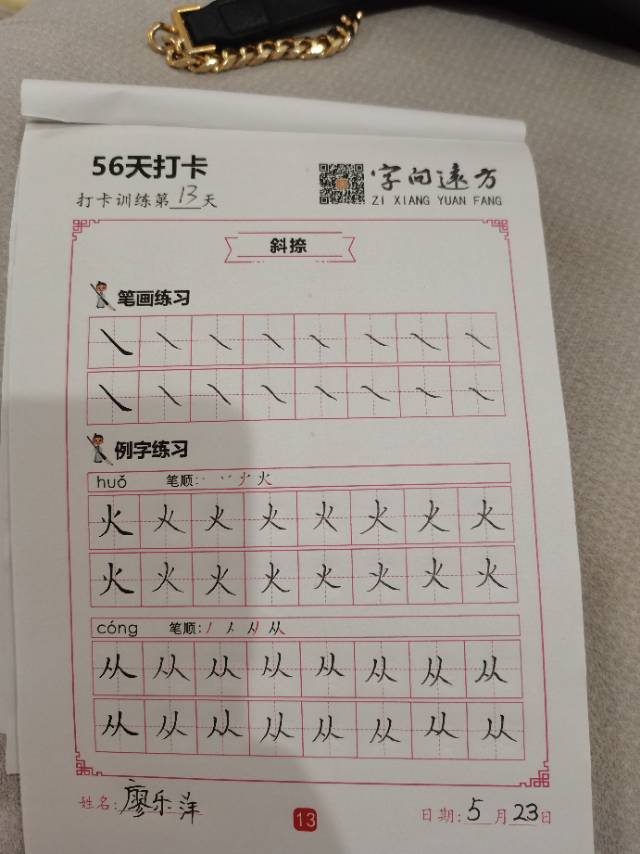 56天打卡
打卡训练第13天
字向远方
ZI XIANG YUAN FANG
斜捺
笔画练习
例字练习
huǒ 笔顺: 火
火 火 火 火 火 火 火 火
火 火 火 火 火 火 火 火
cóng 笔顺: 从
从 从 从 从 从 从 从 从
从 从 从 从 从 从 从 从
姓名:廖乐萍
13
日期:5月23日